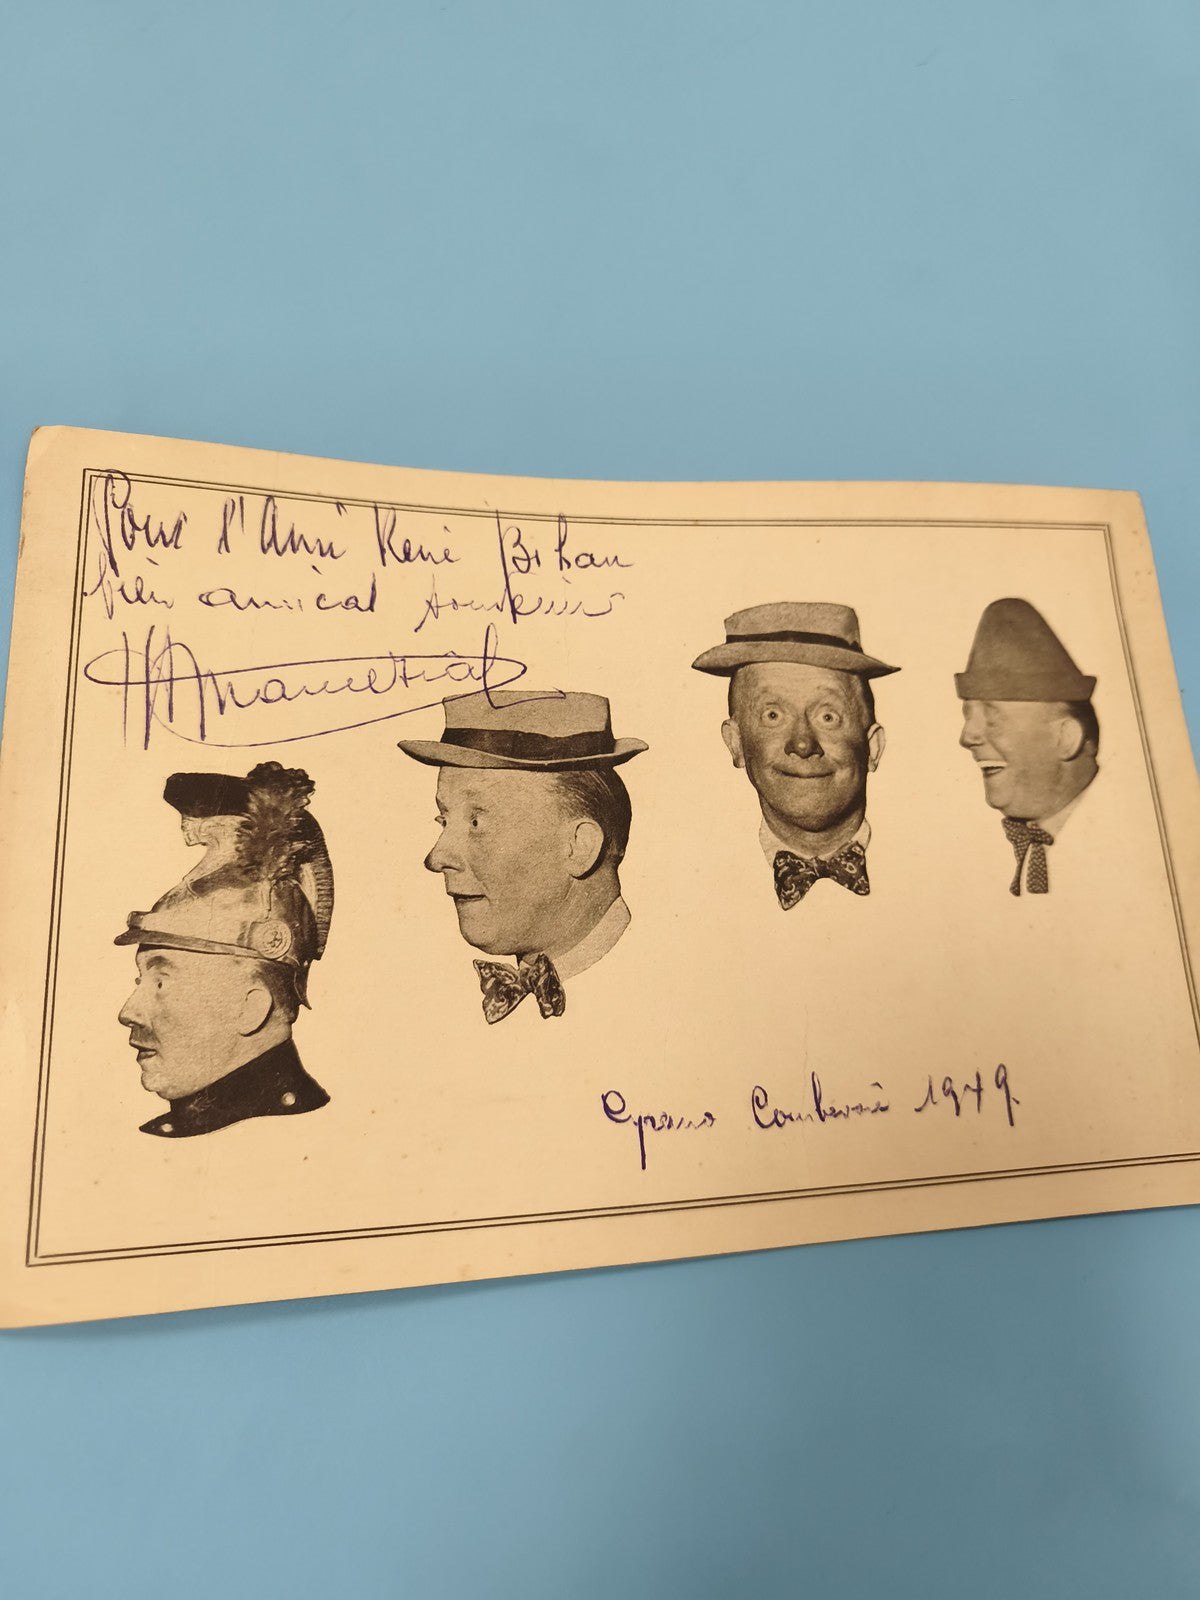 Pour l'Ami René Bihan
bien amical souvenir
Cyrano Courbevoie 1949.